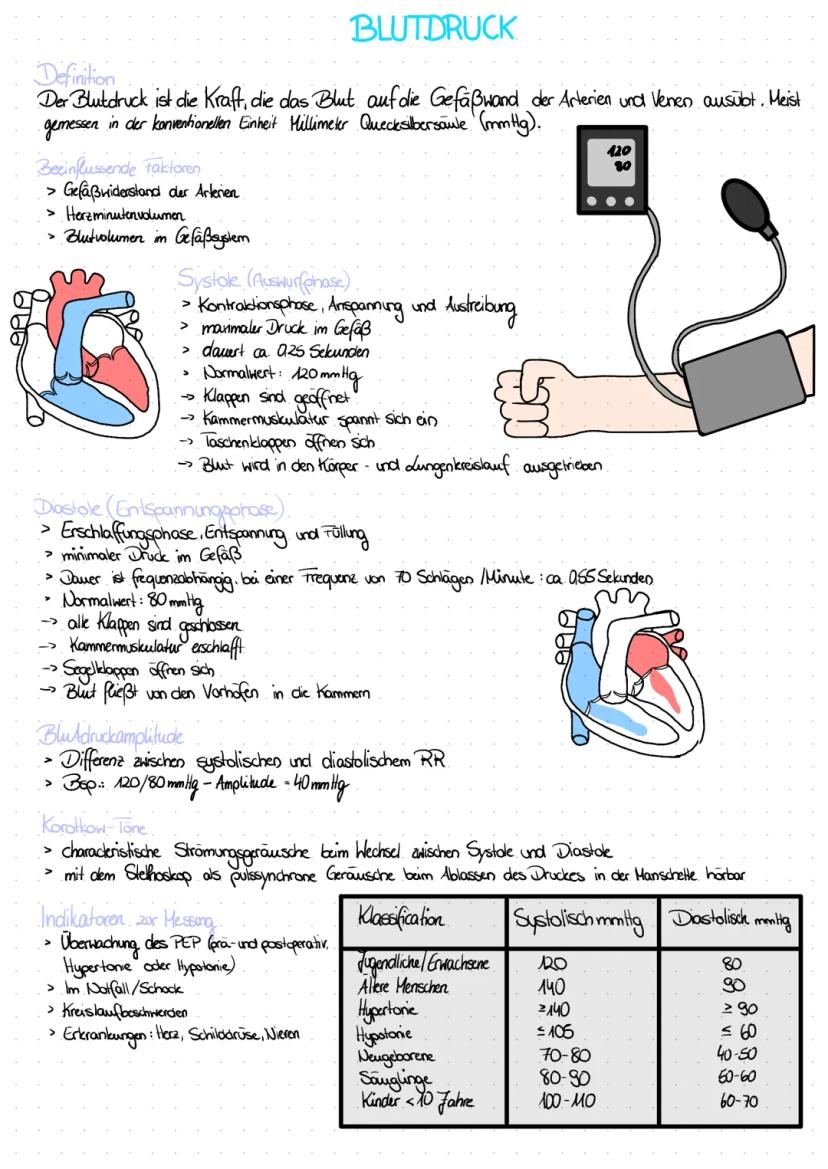 BLUTDRUCK
Definition
Der Blutdruck ist die Kraft, die das Blut auf die Gefäßwand der Arterien und Venen ausübt. Meist
gemessen in der konventionellen Einheit Millimeter Quecksilbersäule (mmHg).
120
80
Beeinflussende Faktoren
> Gefäßwiderstand der Arterien
> Herzminutenvolumen
> Blutvolumen im Gefäßsystem
Systole (Auswurfphase)
> Kontraktionsphase, Anspannung und Austreibung
> maximaler Druck im Gefäß
> dauert ca. 0,25 Sekunden
> Normalwert: 120 mmHg
-> Klappen sind geöffnet
-> Kammermuskulatur spannt sich ein
-> Taschenklappen öffnen sich
-> Blut wird in den Körper- und Lungenkreislauf ausgetrieben
Diastole (Entspannungsphase)
> Erschlaffungsphase, Entspannung und Füllung
> minimaler Druck im Gefäß
> Dauer ist frequenzabhängig, bei einer Frequenz von 70 Schlägen /Minute: ca. 0,55 Sekunden
> Normalwert: 80 mmHg
-> alle Klappen sind geschlossen
-> Kammermuskulatur erschlafft
-> Segelklappen öffnen sich
-> Blut fließt von den Vorhöfen in die Kammern
Blutdruckamplitude
> Differenz zwischen systolischen und diastolischem RR
> Bsp.: 120/80 mmHg - Amplitude = 40 mmHg
Korotkow-Töne
> charackteristische Strömungsgeräusche beim Wechsel zwischen Systole und Diastole
> mit dem Stethoskop als pulssynchrone Geräusche beim Ablassen des Druckes in der Manschette hörbar
Indikatoren zur Messung
> Überwachung des PEP (prä- und postoperativ,
Hypertonie oder Hypotonie)
> Im Notfall/Schock
> Kreislaufbeschwerden
> Erkrankungen: Herz, Schilddrüse, Nieren
Klassification Systolisch mmHg Diastolisch mmHg
Jugendliche/Erwachsene 120 80
Ältere Menschen 140 90
Hypertonie ≥140 ≥ 90
Hypotonie ≤ 105 ≤ 60
Neugeborene 70-80 40-50
Säuglinge 80-90 60-60
Kinder < 10 Jahre 100-110 60-70